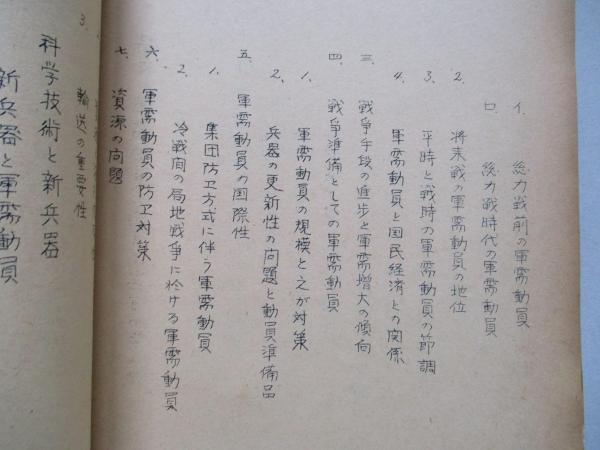 イ、総力戦前の軍需動員
ロ、総力戦時代の軍需動員
2、将来戦の軍需動員の地位
3、平時と戦時の軍需動員の節調
4、軍需動員と国民経済との関係
三、戦争手段の進歩と軍需増大の傾向
四、戦争準備としての軍需動員
1、軍需動員の規模と之が対策
2、兵器の更新性の问題と動員準備品
五、軍需動員の国際性
1、集団防卫方式に伴う軍需動員
2、冷戦间の局地戦争に於ける軍需動員
六、軍需動員の防卫対策
七、資源の问題
3、
輸送の重要性
科学技術と新兵器
新兵器と軍需動員